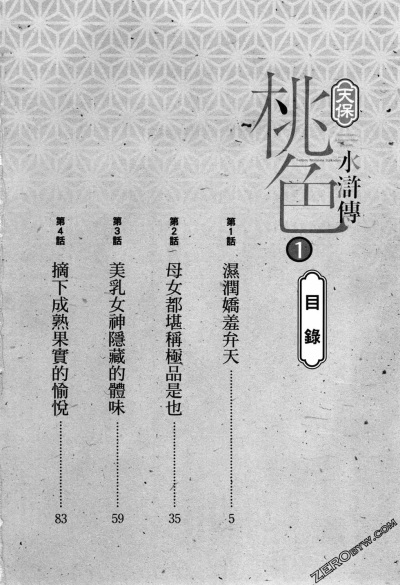 天保
桃色
水滸傳
1
目錄
第1話
濕潤嬌羞弁天………5
第2話
母女都堪稱極品是也………35
第3話
美乳女神隱藏的體味………59
第4話
摘下成熟果實的愉悅………83
ZEROBYW.COM